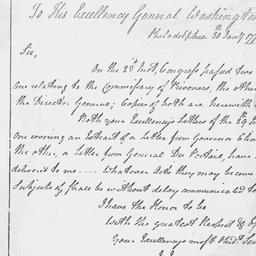 To His Excellency General Washington
Philadelphia 30th Jany 177
Sir,
On the 2d Inst, Congress passed two
one relating to the Commissary of Prisoners, the other
the Director General; Copies of both are herewith
Both your Excellency's Letters of the 29th
one covering an Extract of a Letter from Governor Clin
the other, a Letter from General Du Portail, have
deliver'd to me ---- Whatever Acts they may become
Subjects of shall be without delay communicated to
I have the Honor to be
with the greatest Respect &
Your Excellency's most Obedt Ser